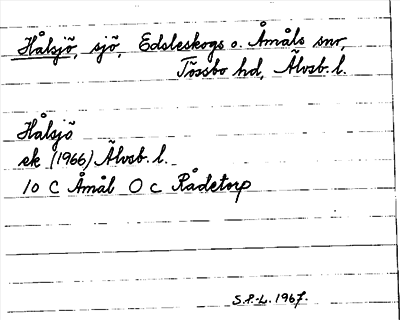 Hålsjö, sjö, Edsleskogs o. Åmåls snr,
Tössbo hd, Älvsb. l.
Hålsjö
ek (1966) Älvsb. l.
10 C Åmål O c Rådetorp
S.P-L. 1967.